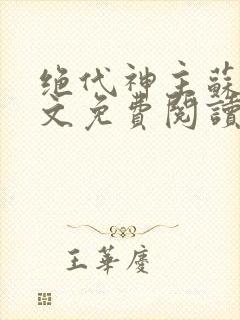 绝代神主蘇
文免費閱讀
王華慶